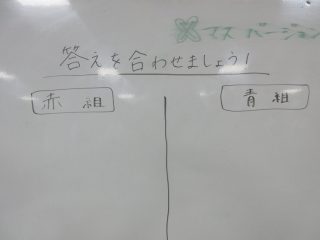 マス バージョン
答えを合わせましょう!
赤組
青組